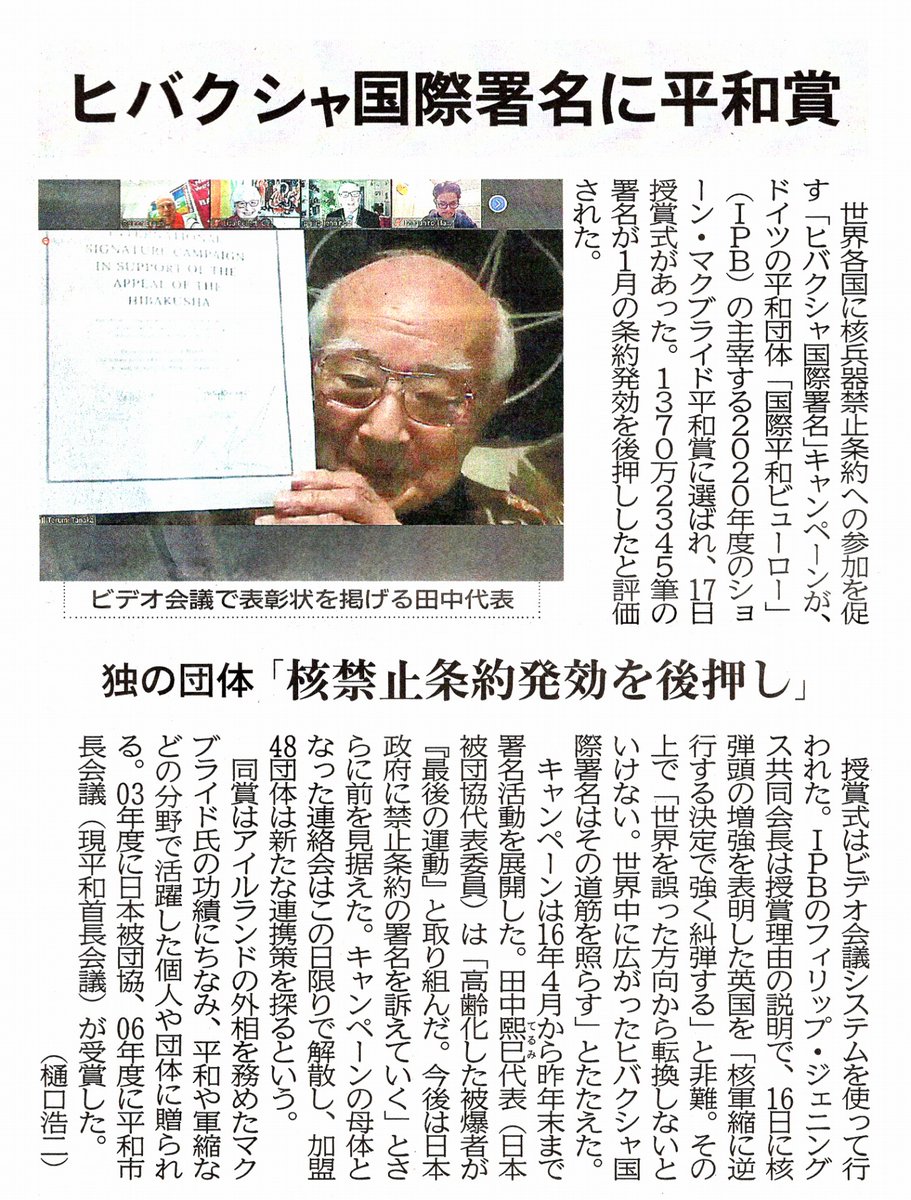 ヒバクシャ国際署名に平和賞
世界各国に核兵器禁止条約への参加を促
す「ヒバクシャ国際署名」キャンペーンが、
ドイツの平和団体「国際平和ビューロー」
（ＩＰＢ）の主宰する２０２０年度のショ
ーン・マクブライド平和賞に選ばれ、17日
授賞式があった。１３７０万２３４５筆の
署名が１月の条約発効を後押ししたと評価
された。
SIGNATURE CAMPAIGN
IN SUPPORT OF THE
APPEAL OF THE
HIBAKUSHA
Terumi Tanaka
ビデオ会議で表彰状を掲げる田中代表
独の団体「核禁止条約発効を後押し」
授賞式はビデオ会議システムを使って行
われた。ＩＰＢのフィリップ・ジェニング
ス共同会長は授賞理由の説明で、16日に核
弾頭の増強を表明した英国を「核軍縮に逆
行する決定で強く糾弾する」と非難。その
上で「世界を誤った方向から転換しないと
いけない。世界中に広がったヒバクシャ国
際署名はその道筋を照らす」とたたえた。
キャンペーンは16年４月から昨年末まで
署名活動を展開した。田中熙巳代表（日本
てるみ
被団協代表委員）は「高齢化した被爆者が
『最後の運動』と取り組んだ。今後は日本
政府に禁止条約の署名を訴えていく」とさ
らに前を見据えた。キャンペーンの母体と
なった連絡会はこの日限りで解散し、加盟
48団体は新たな連携策を探るという。
同賞はアイルランドの外相を務めたマク
ブライド氏の功績にちなみ、平和や軍縮な
どの分野で活躍した個人や団体に贈られ
る。03年度に日本被団協、06年度に平和市
長会議（現平和首長会議）が受賞した。
（樋口浩二）